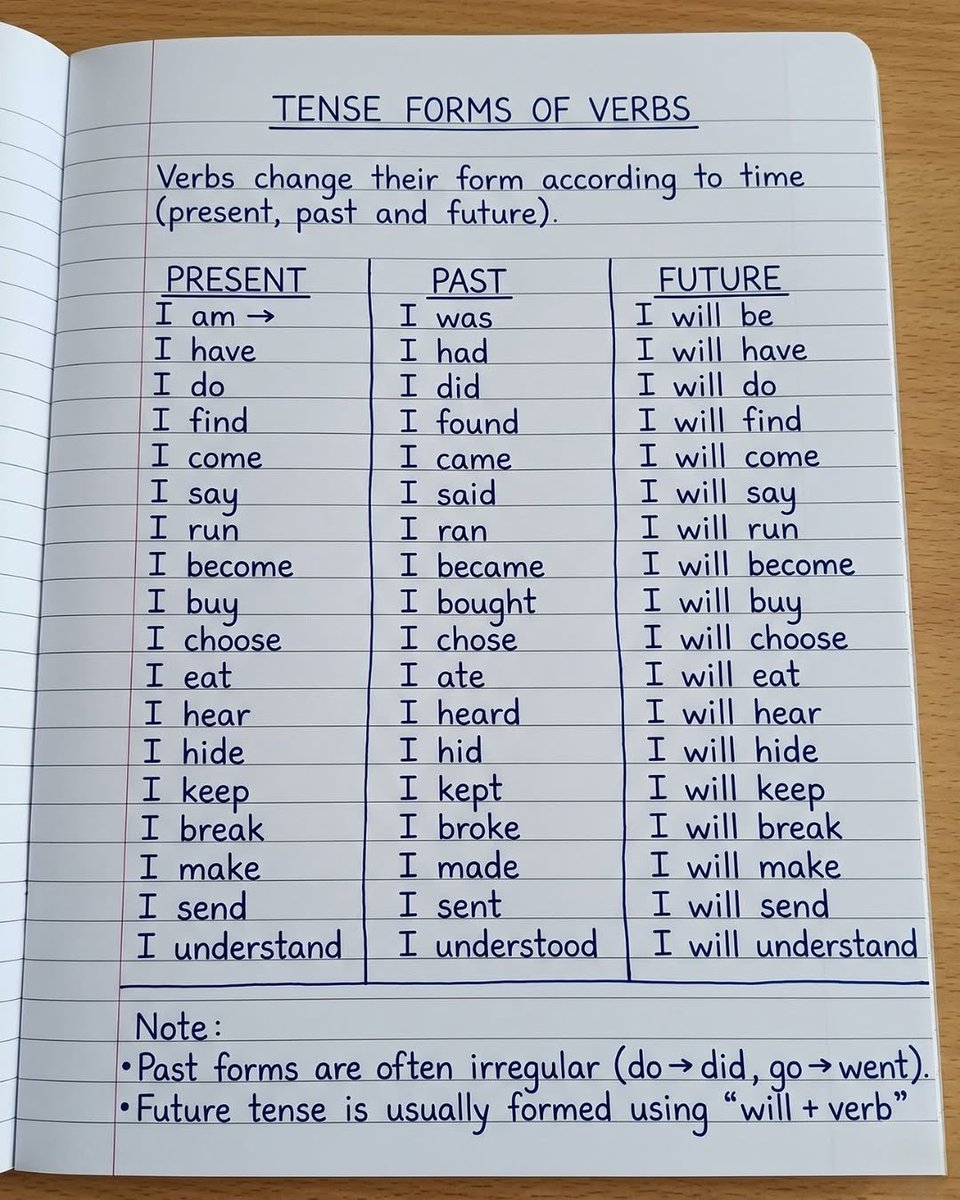 TENSE FORMS OF VERBS
Verbs change their form according to time
(present, past and future).
PRESENT PAST FUTURE
I am → I was I will be
I have I had I will have
I do I did I will do
I find I found I will find
I come I came I will come
I say I said I will say
I run I ran I will run
I become I became I will become
I buy I bought I will buy
I choose I chose I will choose
I eat I ate I will eat
I hear I heard I will hear
I hide I hid I will hide
I keep I kept I will keep
I break I broke I will break
I make I made I will make
I send I sent I will send
I understand I understood I will understand
Note:
•Past forms are often irregular (do→did, go→went).
•Future tense is usually formed using “will + verb”